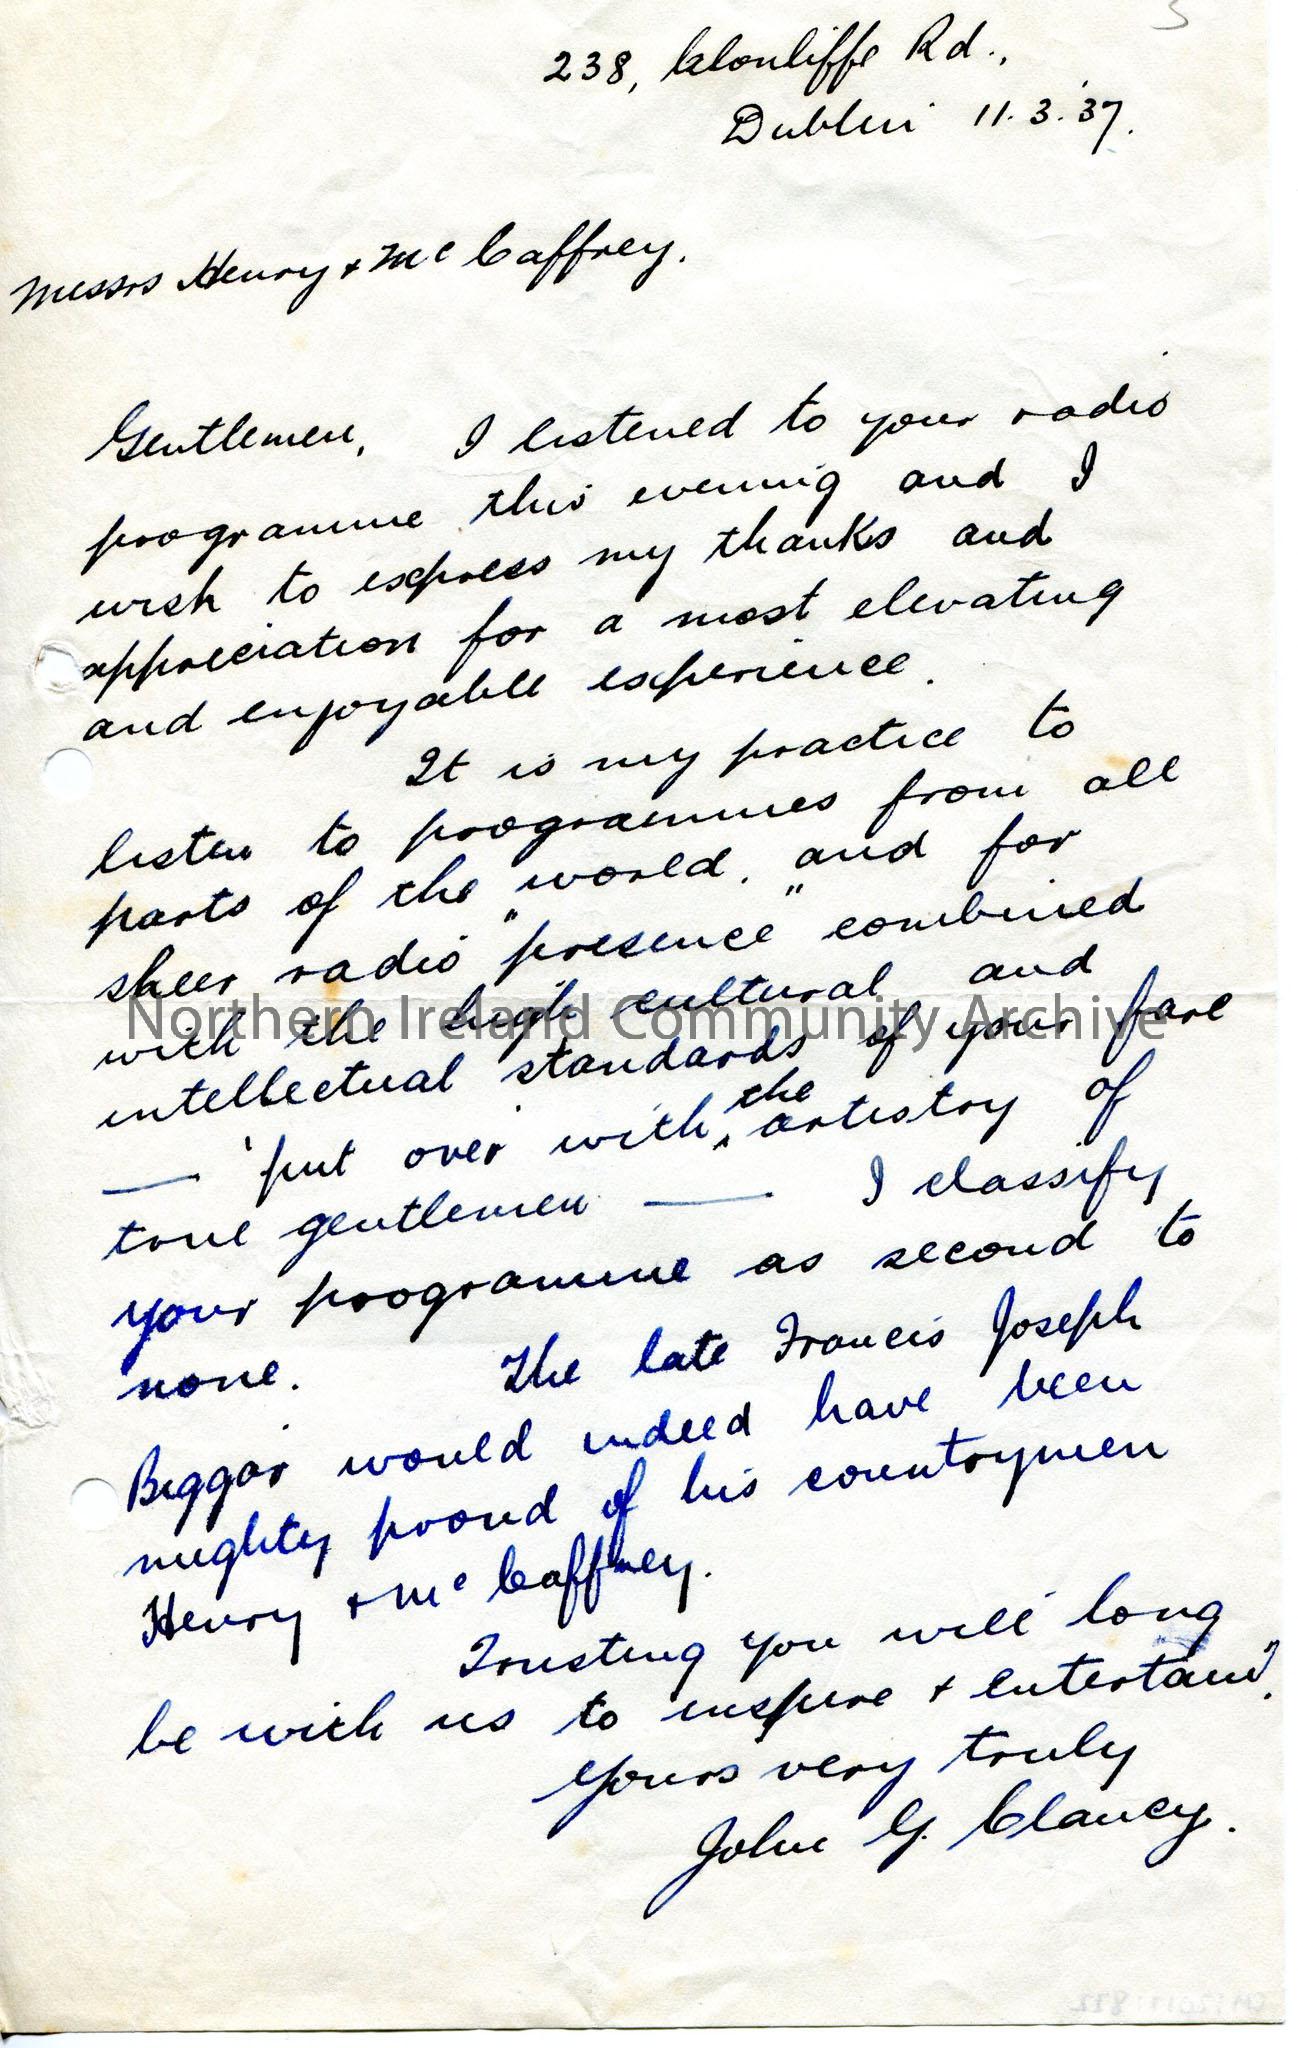 238, Clonliffe Rd.,
Dublin 11.3.'37.
Messrs Henry + McCaffrey.
Gentlemen, I listened to your radio
programme this evening and I
wish to express my thanks and
appreciation for a most elevating
and enjoyable experience.
It is my practice to
listen to programmes from all
parts of the world, and for
sheer radio "presence" combined
with the high cultural and
Northern Ireland Community Archive
intellectual standards of your fare
— 'put over with the artistry of
true gentlemen — I classify
your programme as second to
none. The late Francis Joseph
Biggar would indeed have been
mighty proud of his countrymen
Henry + McCaffrey.
Trusting you will long
be with us to inspire + entertain",
Yours very truly
John G. Clancy.